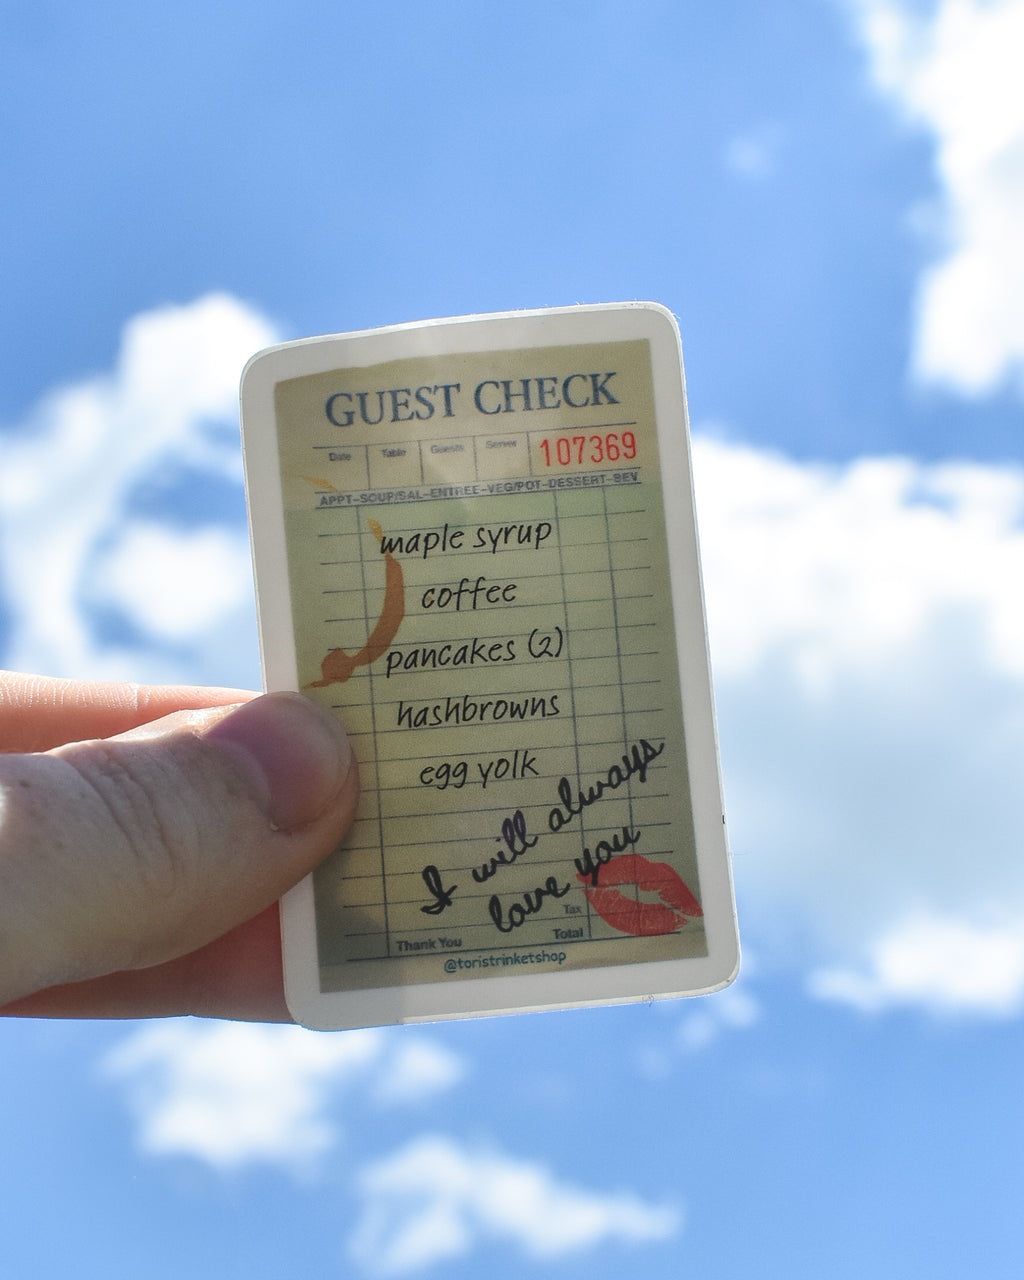 GUEST CHECK
Date Table Guests Server 107369
APPT-SOUP/SAL-ENTREE-VEG/POT-DESSERT-BEV
maple syrup
coffee
pancakes (2)
hashbrowns
egg yolk
I will always
love you
Tax
Thank You Total
@toristrinketshop